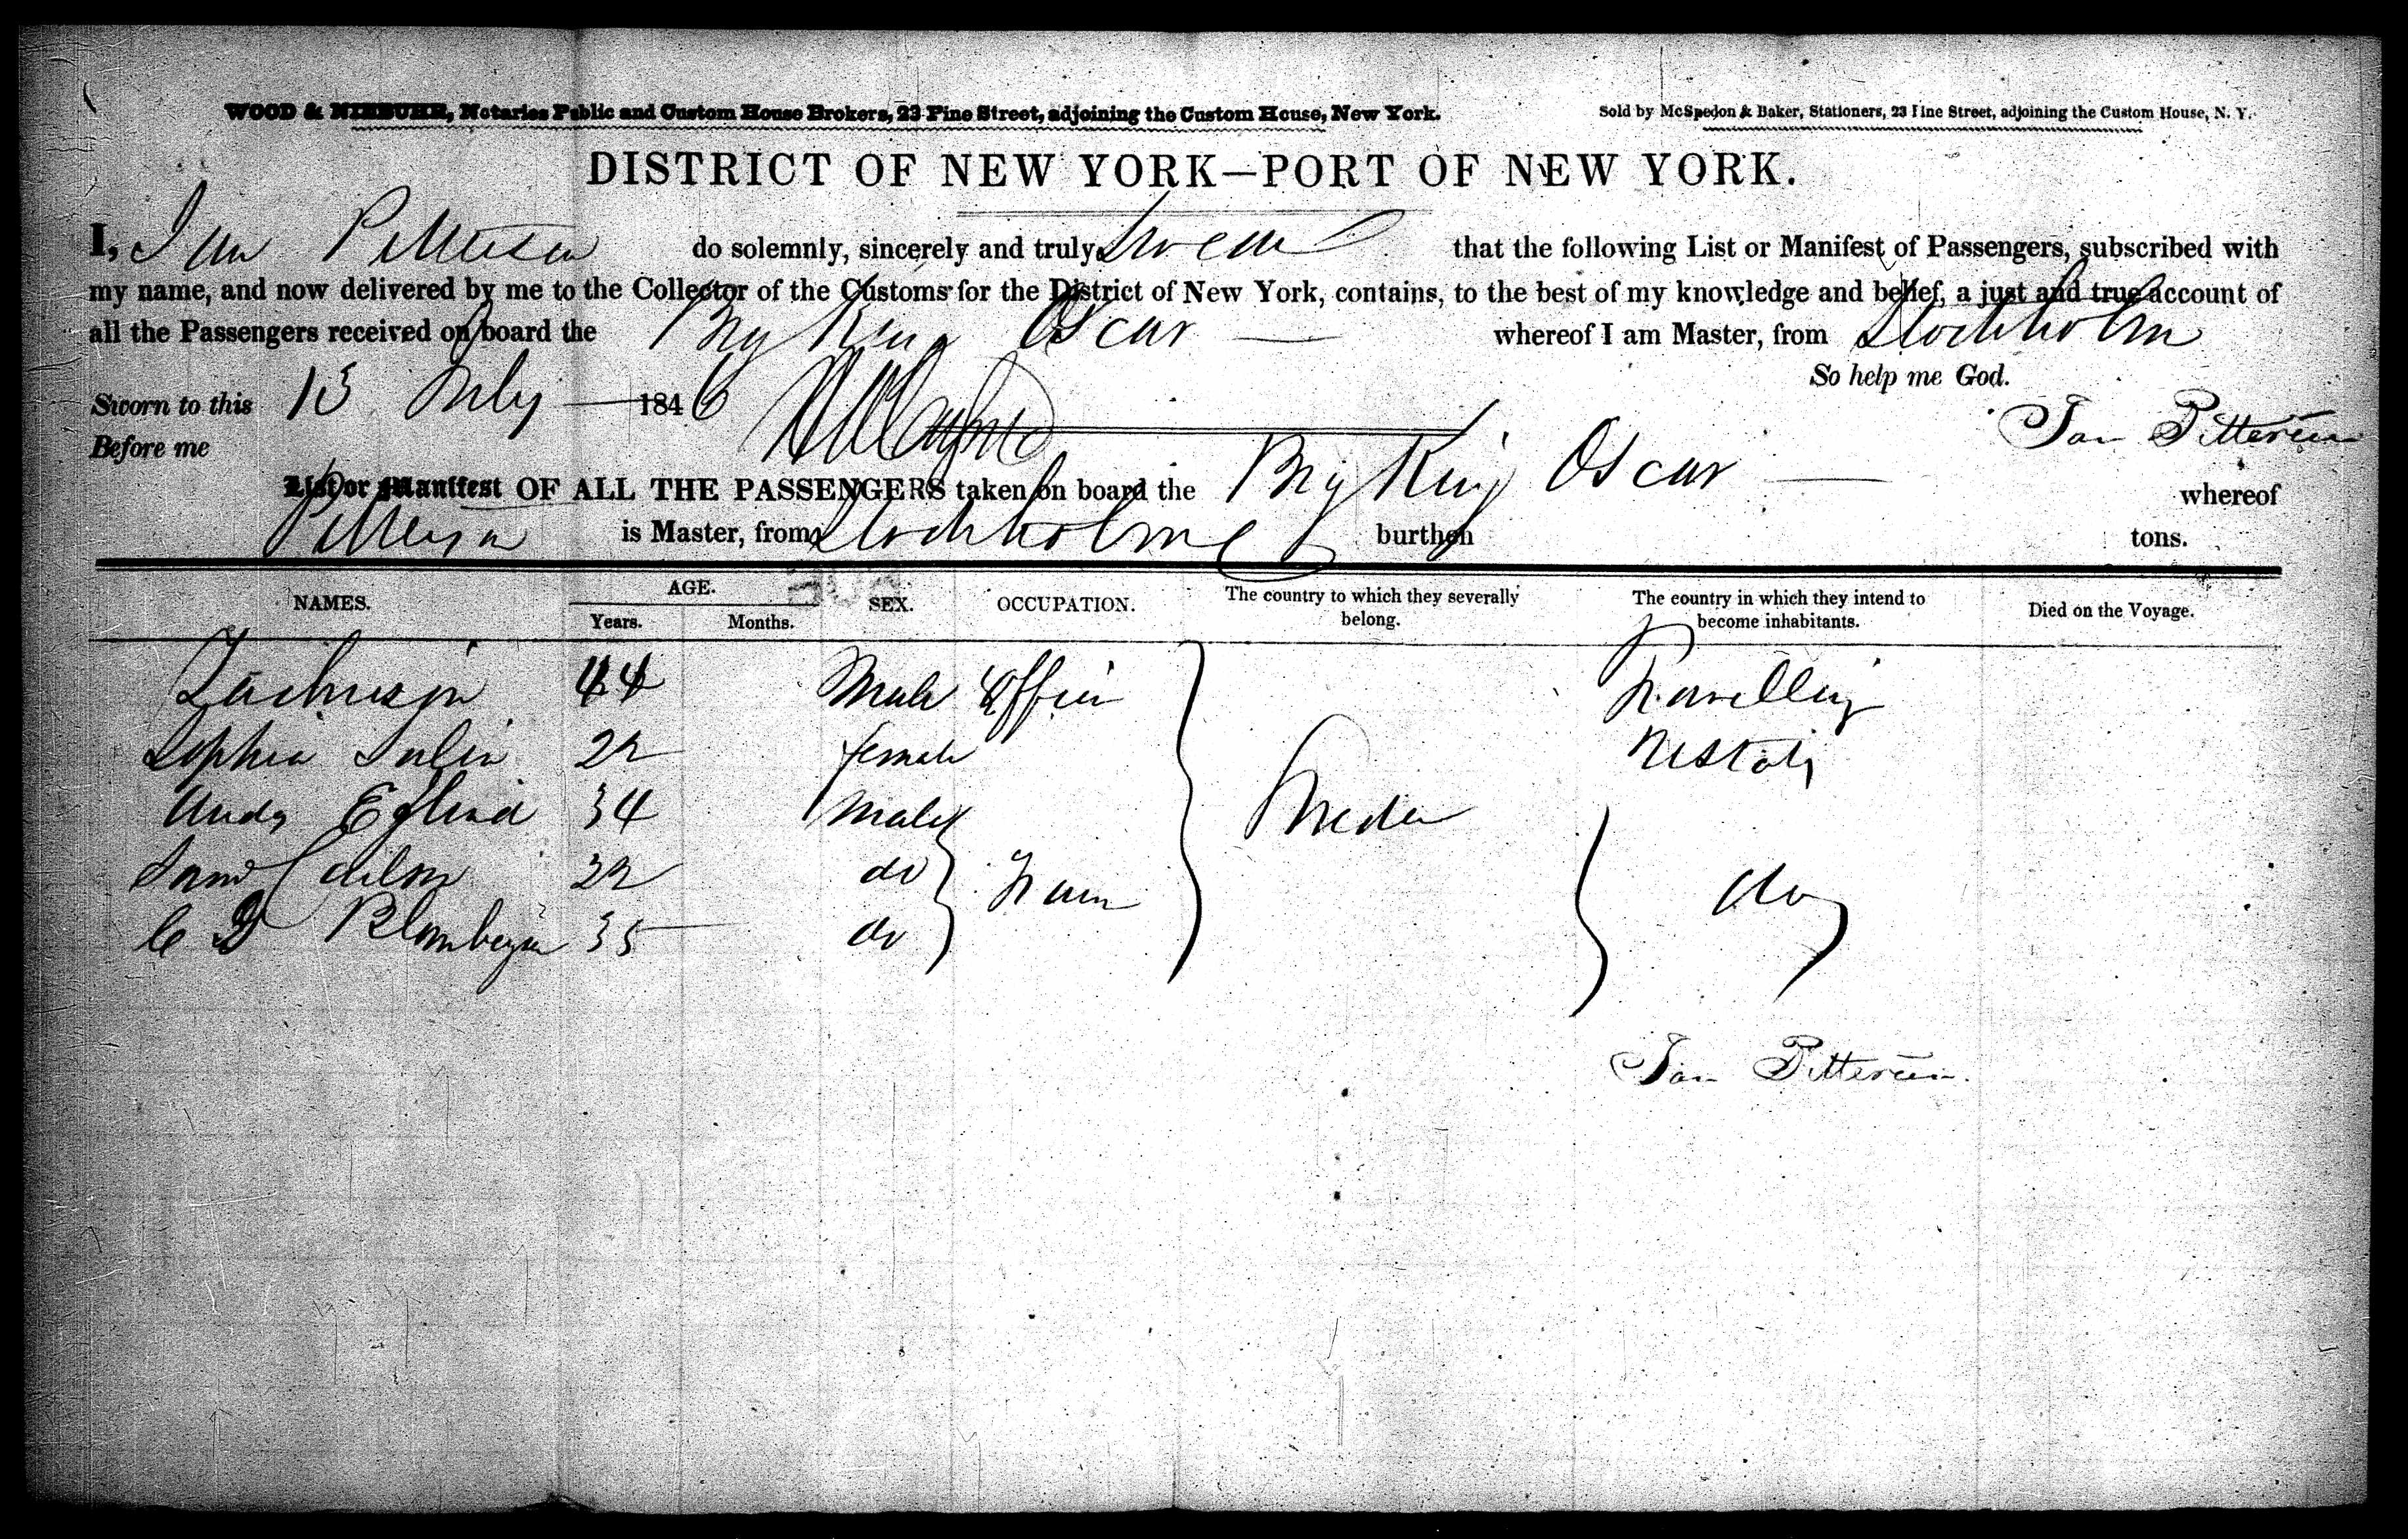 WOOD & NIEBUHR, Notaries Public and Custom House Brokers, 23 Pine Street, adjoining the Custom House, New York.
Sold by McSpedon & Baker, Stationers, 23 Pine Street, adjoining the Custom House, N. Y.
DISTRICT OF NEW YORK—PORT OF NEW YORK.
I, Jan Petterson do solemnly, sincerely and truly Swear that the following List or Manifest of Passengers, subscribed with
my name, and now delivered by me to the Collector of the Customs for the District of New York, contains, to the best of my knowledge and belief, a just and true account of
all the Passengers received on board the Brig King Oscar whereof I am Master, from Stockholm
So help me God.
Sworn to this 13 July 1846
Jan Petterson
Before me
List or Manifest OF ALL THE PASSENGERS taken on board the Brig King Oscar whereof
Petterson is Master, from Stockholm burthen tons.
NAMES. AGE. SEX. OCCUPATION. The country to which they severally belong. The country in which they intend to become inhabitants. Died on the Voyage.
Years. Months.
44 Male Travelling
Sophia 22 female
34 Male Sweden
22 do do
C 35 do
Jan Petterson